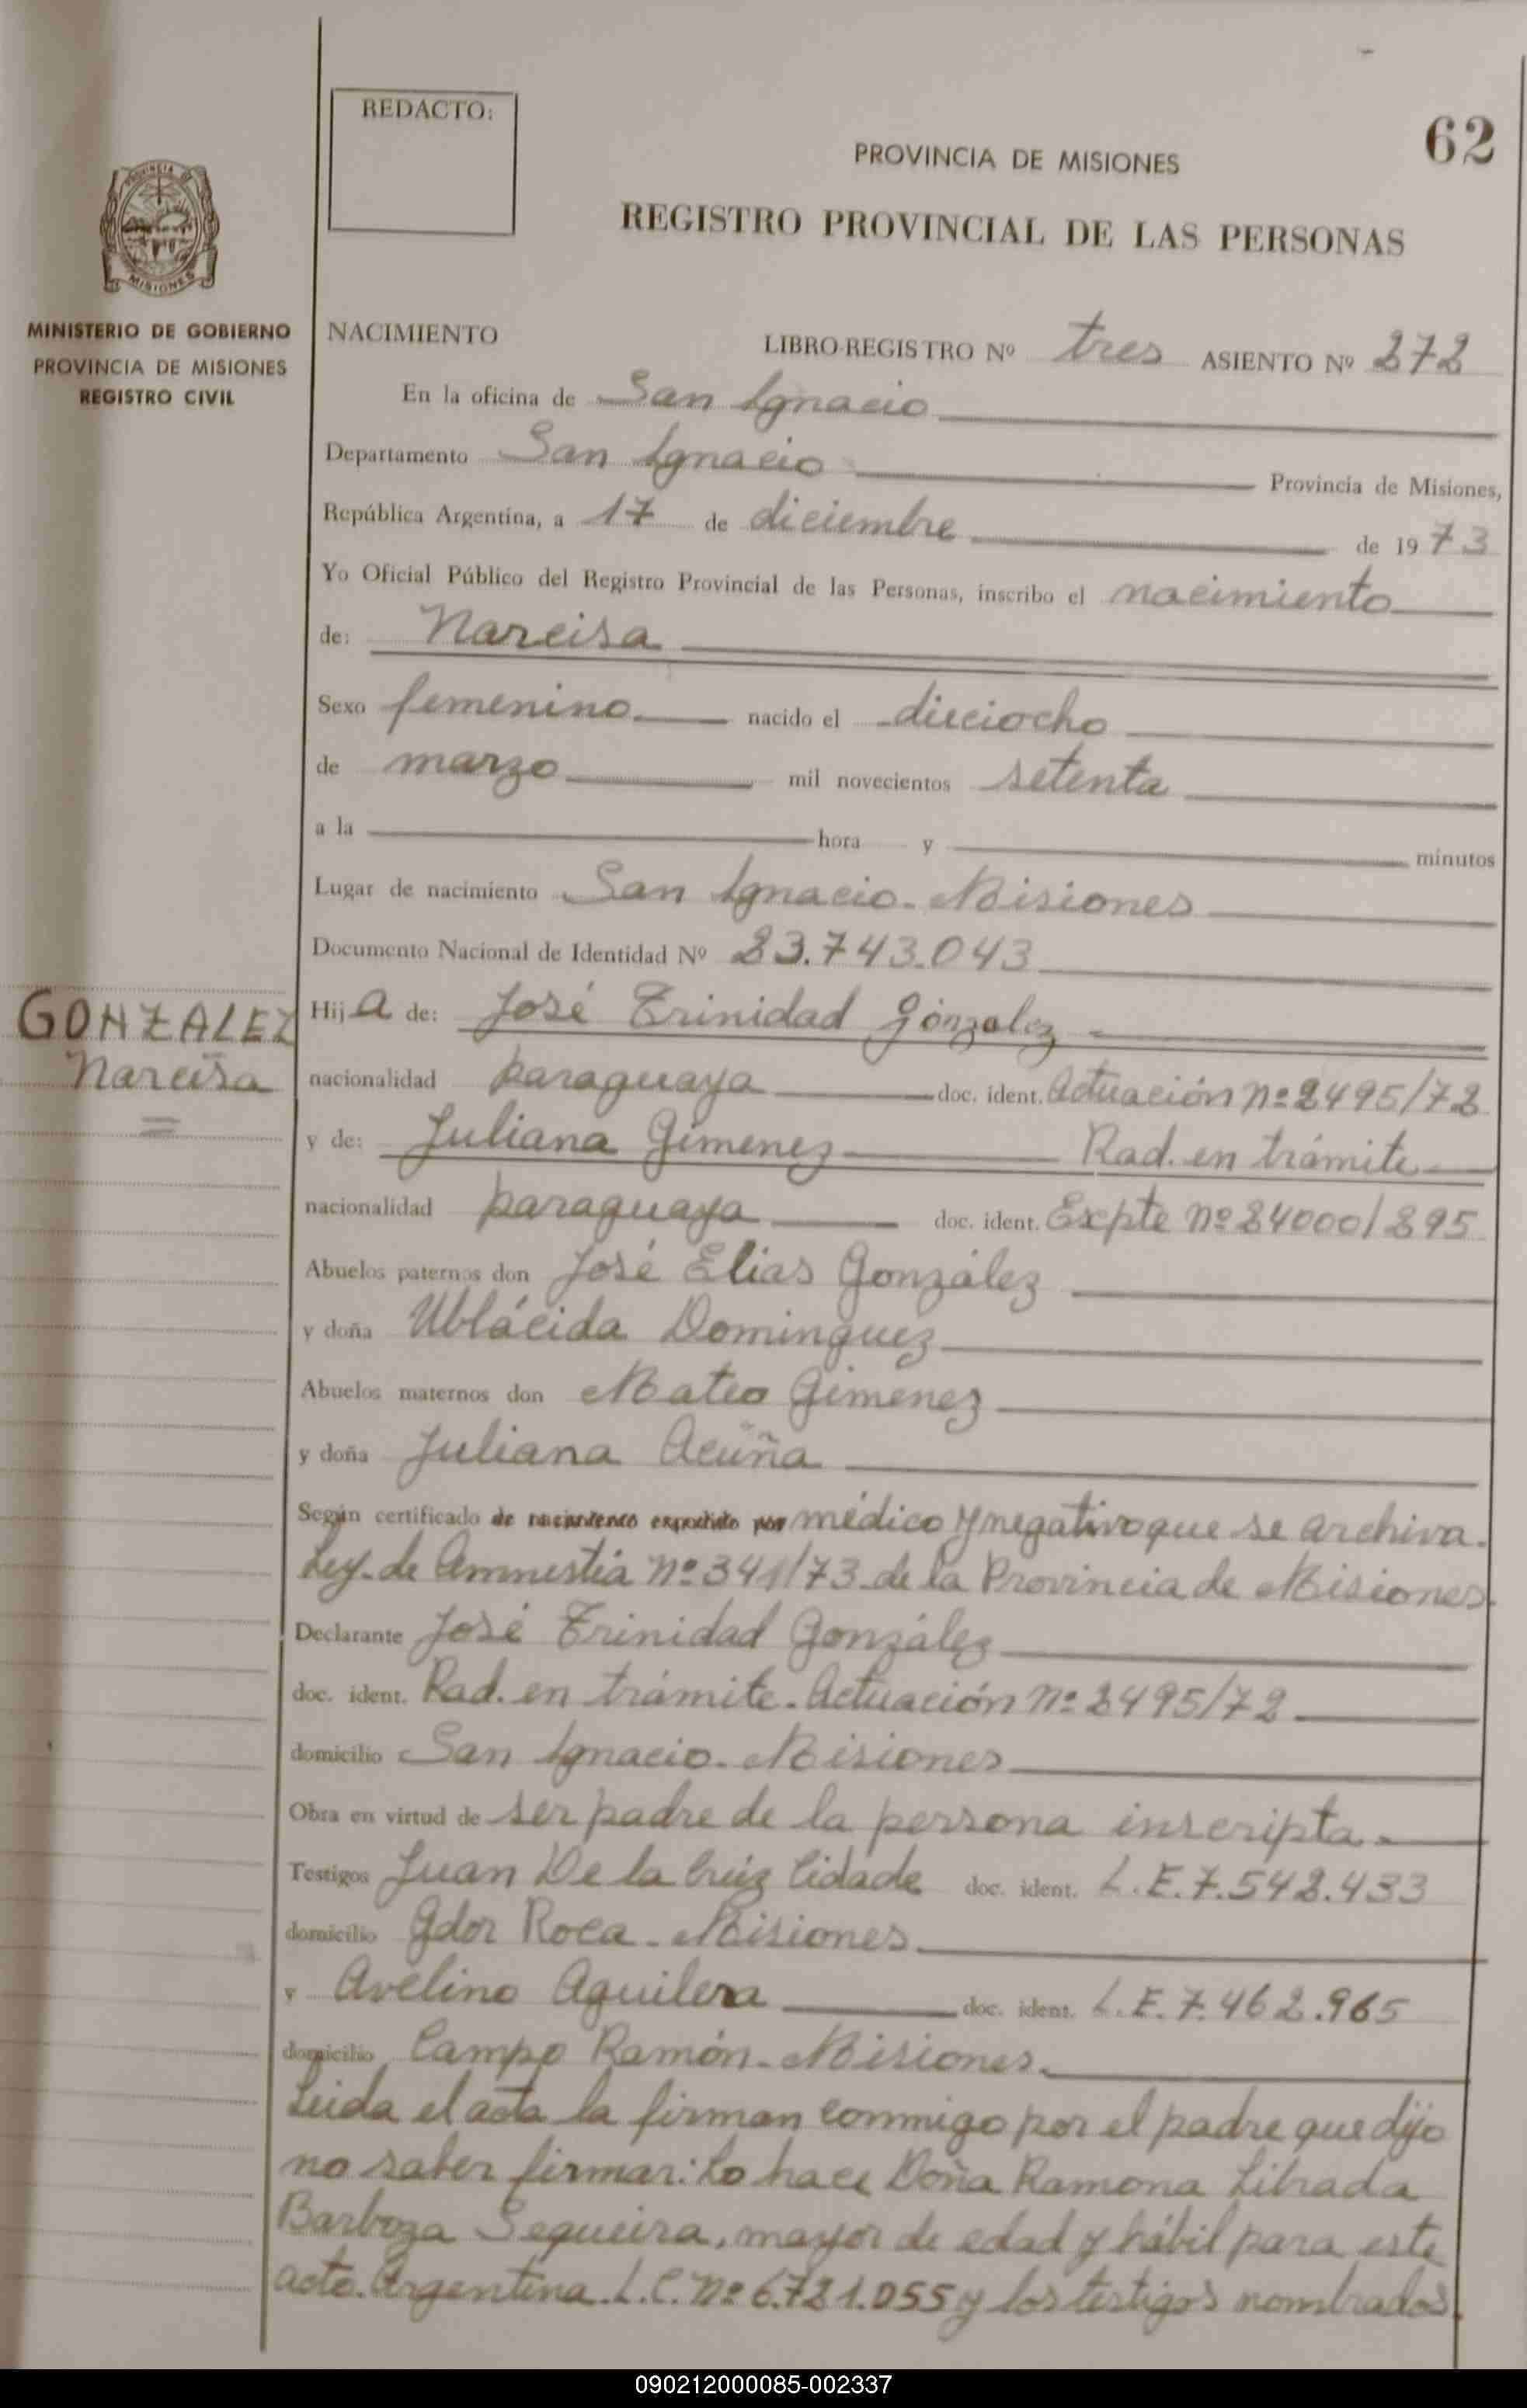 REDACTO:
62
PROVINCIA DE MISIONES
REGISTRO PROVINCIAL DE LAS PERSONAS
PROVINCIA DE
MISIONES
MINISTERIO DE GOBIERNO
PROVINCIA DE MISIONES
REGISTRO CIVIL
NACIMIENTO LIBRO-REGISTRO Nº tres ASIENTO Nº 272
En la oficina de San Ignacio
Departamento San Ignacio Provincia de Misiones,
República Argentina, a 17 de diciembre de 1973
Yo Oficial Público del Registro Provincial de las Personas, inscribo el nacimiento
de: Narcisa
Sexo femenino nacido el dieciocho
de marzo mil novecientos setenta
a la hora y minutos
Lugar de nacimiento San Ignacio. Misiones
Documento Nacional de Identidad Nº 23.743.043
GONZALEZ
Narcisa
Hija de: José Trinidad González
nacionalidad paraguaya doc. ident. Actuación nº 2495/72
y de: Juliana Gimenez Rad. en trámite
nacionalidad paraguaya doc. ident. Expte nº 24000/295
Abuelos paternos don José Elias González
y doña Ublácida Dominguez
Abuelos maternos don Mateo Gimenez
y doña Juliana Acuña
Según certificado de nacimiento expedido por médico y negativo que se archiva.
Ley de Amnestía nº 341/73 de la Provincia de Misiones.
Declarante José Trinidad González
doc. ident. Rad. en trámite. Actuación nº 2495/72
domicilio San Ignacio. Misiones
Obra en virtud de ser padre de la persona inscripta.
Testigos Juan De la Cruz Cidade doc. ident. L.E.7.542.433
domicilio Gdor Roca. Misiones
y Avelino Aguilera doc. ident. L.E.7.462.965
domicilio Campo Ramón. Misiones.
Leida el acta la firman conmigo por el padre que dijo
no saber firmar: Lo hace Doña Ramona Librada
Barboza Sequeira, mayor de edad y hábil para este
acto. Argentina. L.C. nº 6.721.055 y los testigos nombrados.
090212000085-002337